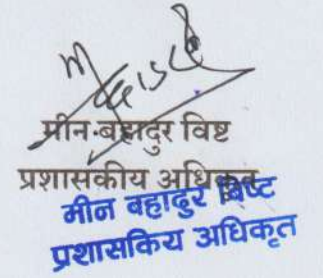 मीन बहादुर विष्ट
प्रशासकीय अधिकृत
मीन बहादुर बिष्ट
प्रशासकिय अधिकृत